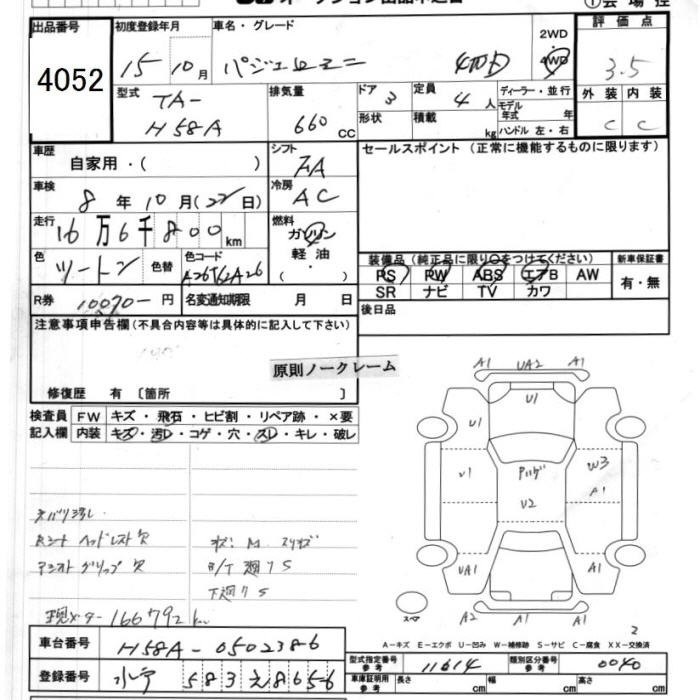 ①会場控
出品番号
4052
初度登録年月
15年 10月
車名・グレード
パジェロミニ 4WD
2WD
4WD
評価点
3.5
外装 内装
C C
型式
TA-
H58A
排気量
660 cc
ドア
3
形状
定員
4人
積載
kg
ディーラー・並行
モデル年式 年
ハンドル 左・右
車歴
自家用・( )
シフト
FA
車検
8年 10月(22日)
冷房
AC
走行
16万6千800km
燃料
ガソリン
軽油
( )
色
ツートン
色替
色コード
A26T62A26
R券
10070-円
名変通知期限 月 日
セールスポイント(正常に機能するものに限ります)
装備品(純正品に限り○をつけてください)
PS PW ABS エアB AW
SR ナビ TV カワ
新車保証書
有・無
後日品
注意事項申告欄(不具合内容等は具体的に記入して下さい)
原則ノークレーム
修復歴 有 〔箇所 〕
検査員記入欄
FW キズ・飛石・ヒビ割・リペア跡・×要
内装 キズ・汚レ・コゲ・穴・スレ・キレ・破レ
天バリ汚レ
Rシート ヘッドレスト欠
アシストグリップ 欠
現メーター 166792km
B/T 廻り S
下廻り S
A1 UA2 A1
U1
U1
U1
W3
A1
U2
UA1
A1
A2 A1 A1
スペア
2
A-キズ E-エクボ U-凹み W-補修跡 S-サビ C-腐食 XX-交換済
車台番号
H58A-0502386
登録番号
583え865-6
型式指定番号 参考
11614
類別区分番号 参考
0040
車庫証明用 参考
長さ cm
幅 cm
高さ cm